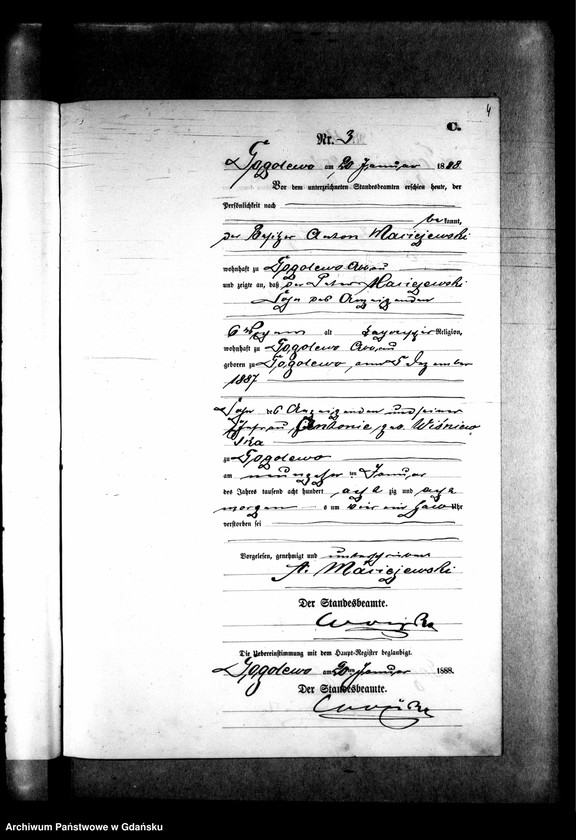 4
C.
Nr. 3.
Gogolewo am 20 Januar 1888
Vor dem unterzeichneten Standesbeamten erschien heute, der
Persönlichkeit nach
bekannt,
der Besitzer Anton Maciejewski
wohnhaft zu Gogolewo Abbau
und zeigte an, daß der Peter Maciejewski
Sohn des Anzeigenden
6 Wochen alt katholischer Religion,
wohnhaft zu Gogolewo Abbau
geboren zu Gogolewo, am 5 Dezember
1887
Sohn des Anzeigenden und seiner
Ehefrau Antonie geb. Wiśniew
ska
zu Gogolewo
am neunzehnten Januar
des Jahres tausend acht hundert achtzig und acht
morgens um vier ein halb Uhr
verstorben sei
Vorgelesen, genehmigt und unterschrieben
A. Maciejewski
Der Standesbeamte.
Die Uebereinstimmung mit dem Haupt-Register beglaubigt.
Gogolewo am 20 Januar 1888.
Der Standesbeamte.
Archiwum Państwowe w Gdańsku